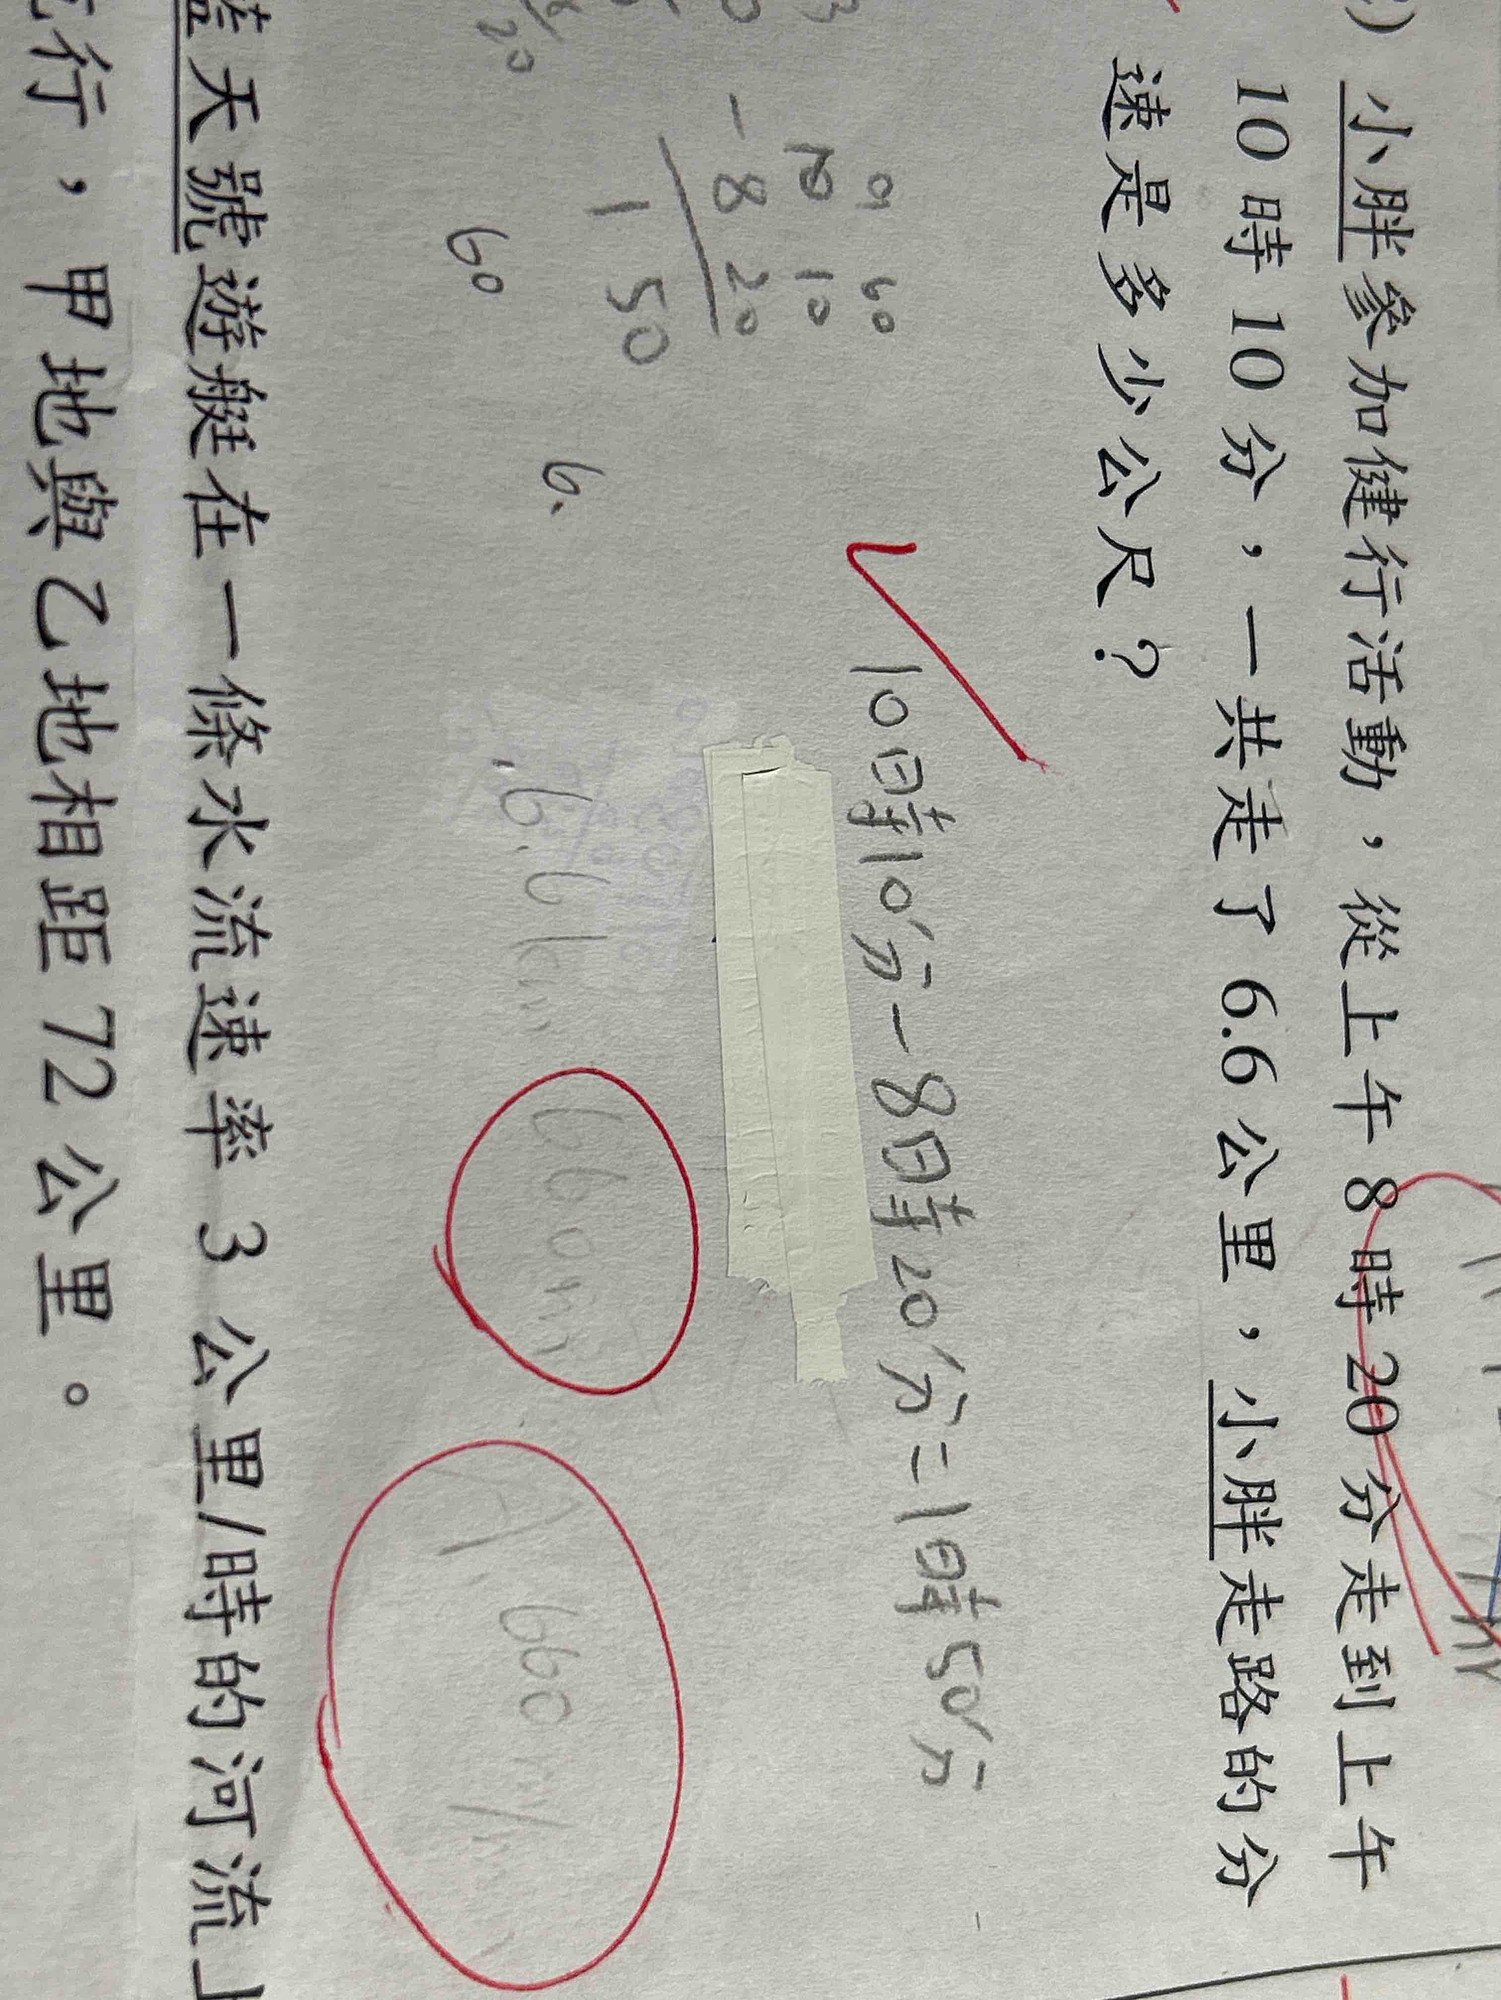 小胖參加健行活動，從上午8時20分走到上午
10時10分，一共走了6.6公里，小胖走路的分
速是多少公尺？
10時10分－8時20分＝1時50分
9 60
10 10
－8 20
1 50
6.
60
6.6km
660m
A:660m/
藍天號遊艇在一條水流速率3公里/時的河流上
行，甲地與乙地相距72公里。